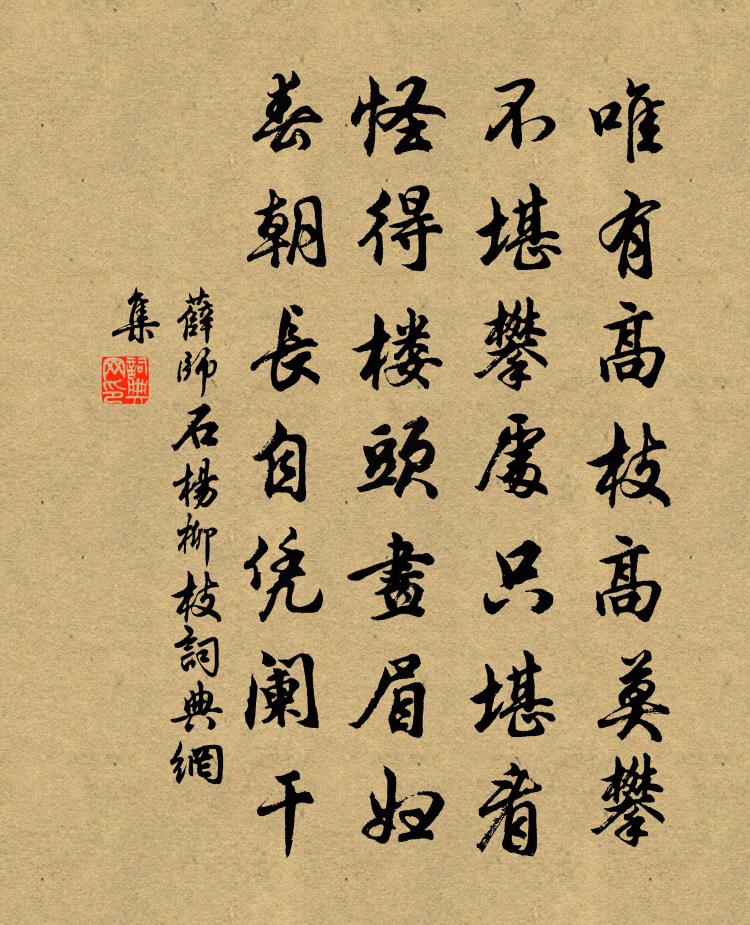 唯有高枝高莫攀
不堪攀處只堪看
怪得楼頭畫眉妇
春朝長自凭阑干
薛師石楊柳枝詞典網
集
詞典网印